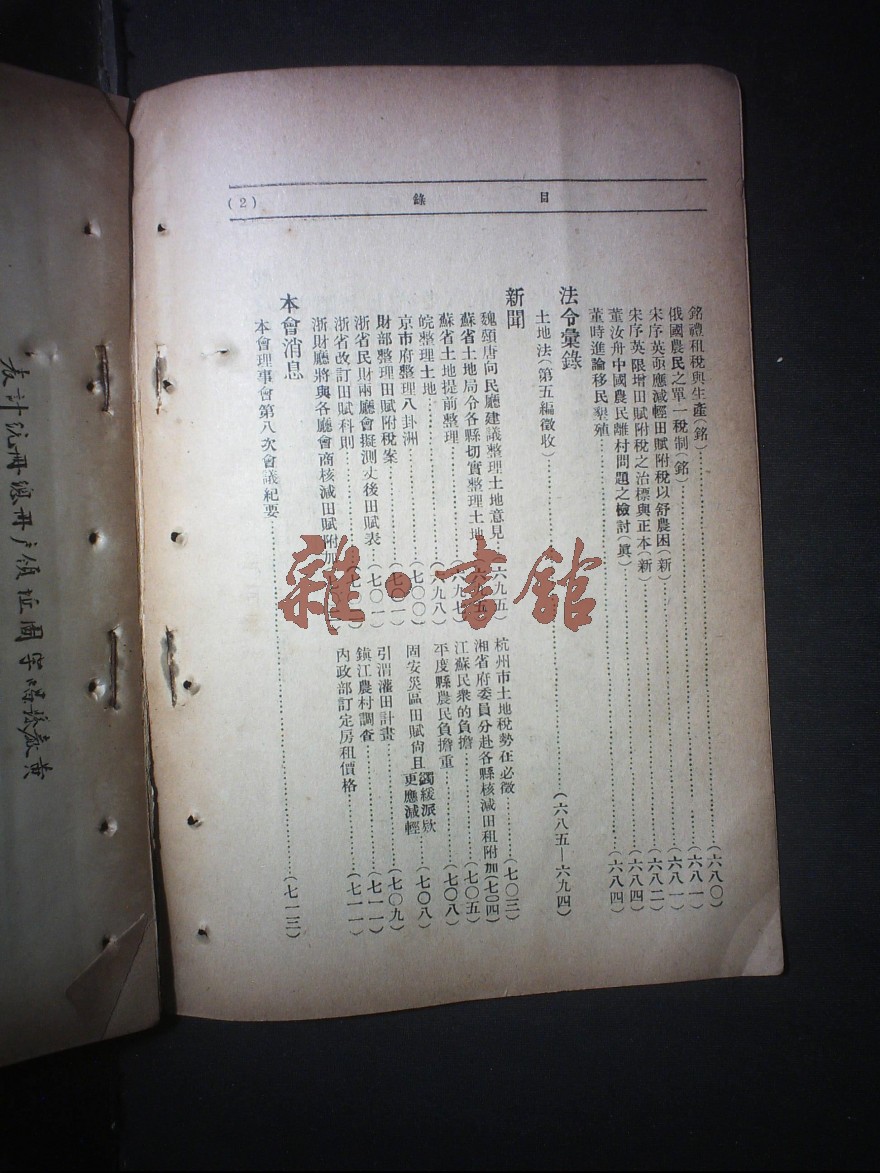 目錄
(2)
銘禮租稅與生產(銘)……(六八〇)
俄國農民之單一稅制(銘)……(六八一)
宋序英亟應減輕田賦附稅以舒農困(新)……(六八二)
宋序英限增田賦附稅之治標與正本(新)……(六八四)
董汝舟中國農民離村問題之檢討(眞)……(六八四)
董時進論移民墾殖
法令彙錄
土地法(第五編徵收)……(六八五—六九四)
新聞
魏頌唐向民廳建議整理土地意見…六九五
蘇省土地局令各縣切實整理土地
蘇省土地提前整理……(六九七)
皖整理土地……(六九八)
京市府整理八卦洲……(七〇〇)
財部整理田賦附稅案……(七〇一)
浙省民財兩廳會擬測丈後田賦表…(七〇一)
浙省改訂田賦科則
浙財廳將與各廳會商核減田賦附加
杭州市土地稅勢在必徵……(七〇三)
湘省府委員分赴各縣核減田租附加(七〇四)
江蘇民衆的負擔……(七〇五)
平度縣農民負擔重……(七〇八)
固安災區田賦尙且蠲緩派欵更應減輕……(七〇八)
引渭灌田計畫……(七〇九)
鎭江農村調查……(七一一)
內政部訂定房租價格……(七一一)
本會消息
本會理事會第八次會議紀要……(七一三)
雜·書館